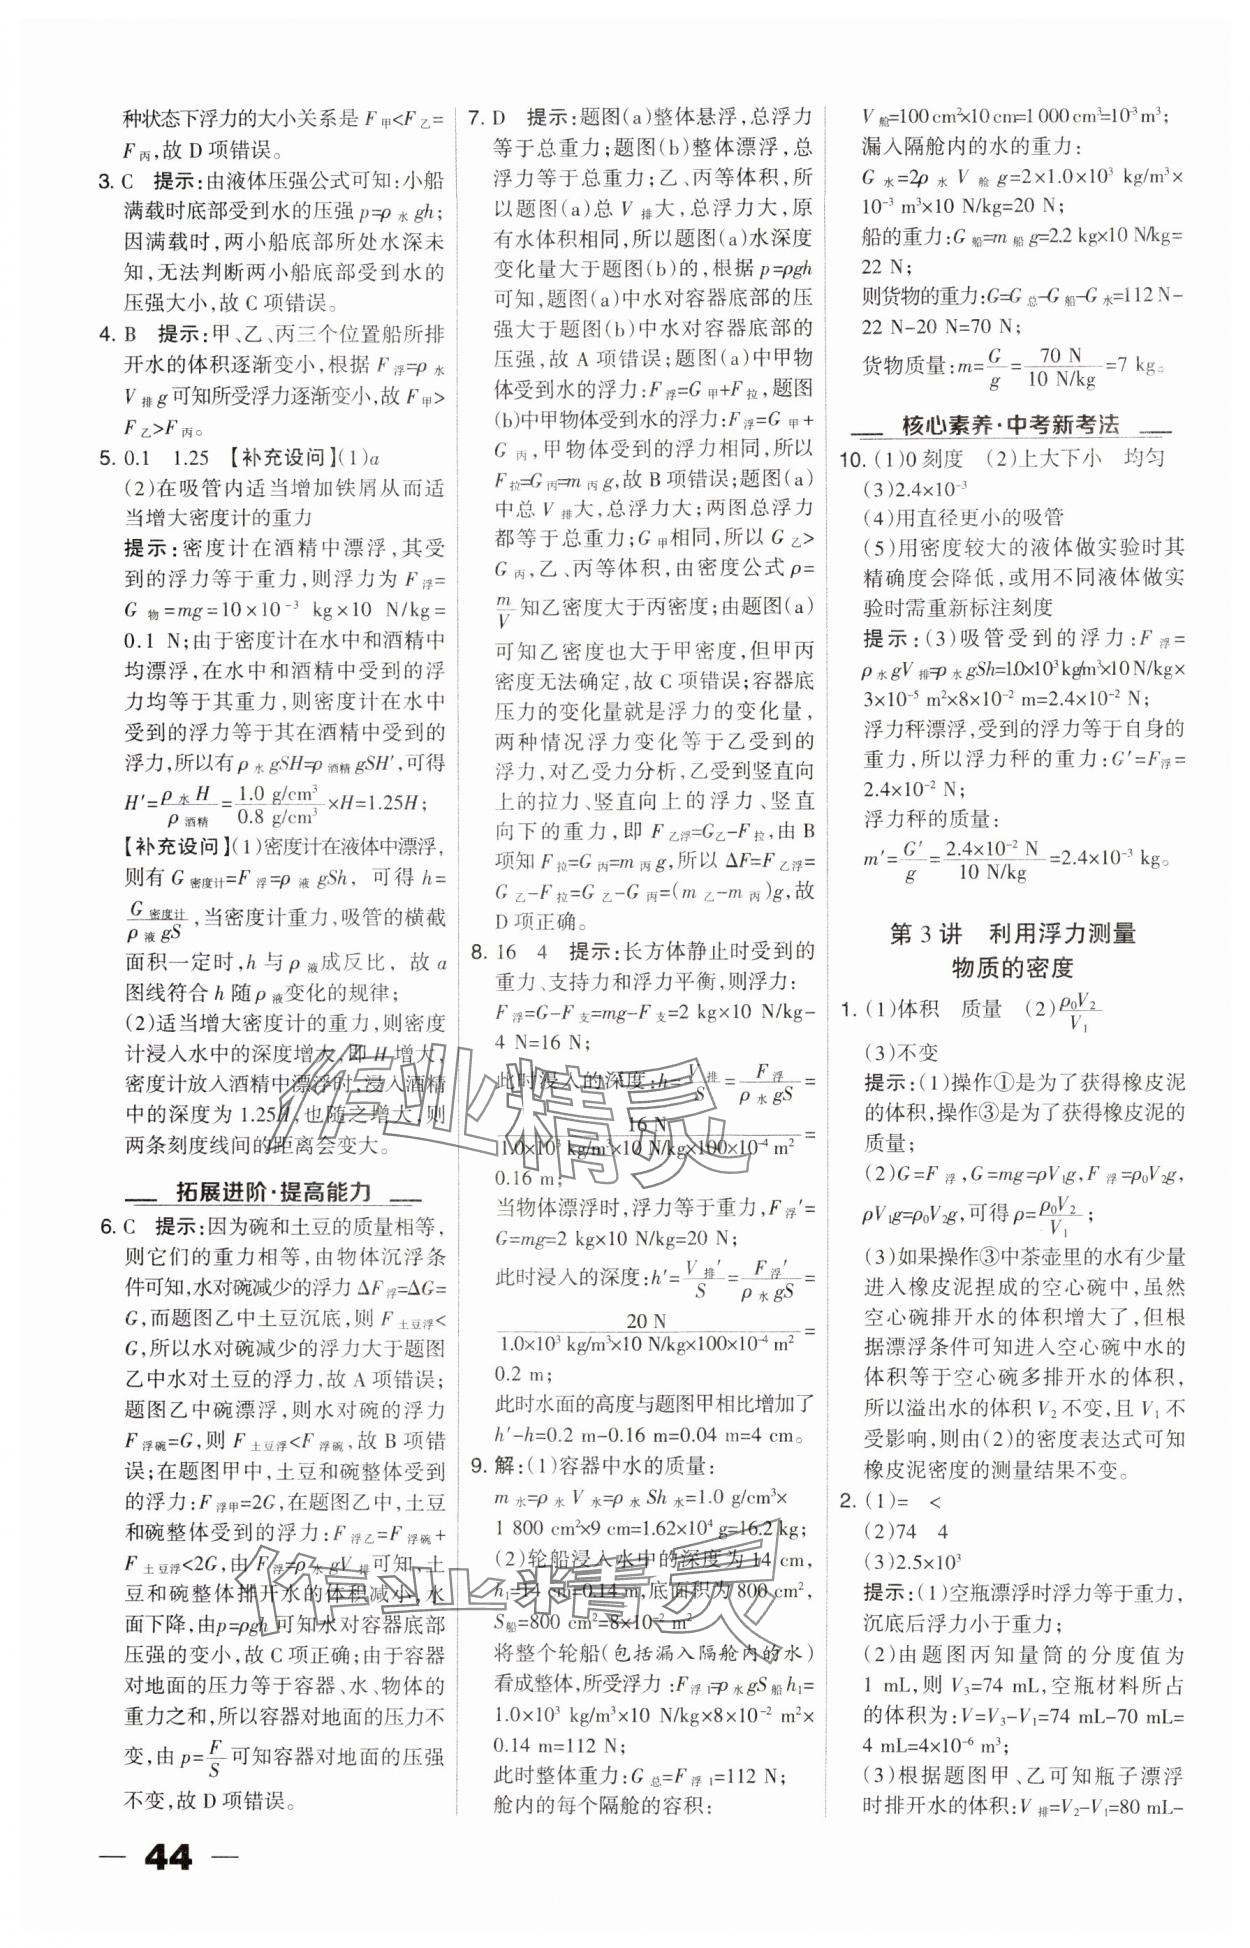 种状态下浮力的大小关系是 F甲<F乙=
F丙,故 D 项错误。
3. C 提示:由液体压强公式可知:小船
满载时底部受到水的压强 p=ρ水gh;
因满载时,两小船底部所处水深未
知,无法判断两小船底部受到水的
压强大小,故 C 项错误。
4. B 提示:甲、乙、丙三个位置船所排
开水的体积逐渐变小,根据 F浮=ρ水
V排g 可知所受浮力逐渐变小,故 F甲>
F乙>F丙。
5. 0.1 1.25 【补充设问】(1)a
(2)在吸管内适当增加铁屑从而适
当增大密度计的重力
提示:密度计在酒精中漂浮,其受
到的浮力等于重力,则浮力为 F浮=
G物=mg=10×10⁻³ kg×10 N/kg=
0.1 N;由于密度计在水中和酒精中
均漂浮,在水中和酒精中受到的浮
力均等于其重力,则密度计在水中
受到的浮力等于其在酒精中受到的
浮力,所以有 ρ水gSH=ρ酒精gSH′,可得
H′=ρ水H/ρ酒精=1.0 g/cm³/0.8 g/cm³×H=1.25H;
【补充设问】(1)密度计在液体中漂浮,
则有 G密度计=F浮=ρ液gSh, 可得 h=
G密度计/ρ液gS,当密度计重力,吸管的横截
面积一定时,h 与 ρ液成反比, 故 a
图线符合 h 随 ρ液变化的规律;
(2)适当增大密度计的重力,则密度
计浸入水中的深度增大,即 H 增大,
密度计放入酒精中漂浮时,浸入酒精
中的深度为 1.25H,也随之增大,则
两条刻度线间的距离会变大。
拓展进阶·提高能力
6. C 提示:因为碗和土豆的质量相等,
则它们的重力相等,由物体沉浮条
件可知,水对碗减少的浮力 ΔF浮=ΔG=
G,而题图乙中土豆沉底,则 F土豆浮<
G,所以水对碗减少的浮力大于题图
乙中水对土豆的浮力,故 A 项错误;
题图乙中碗漂浮,则水对碗的浮力
F浮碗=G,则 F土豆浮<F浮碗,故 B 项错
误;在题图甲中,土豆和碗整体受到
的浮力:F浮甲=2G,在题图乙中,土豆
和碗整体受到的浮力:F浮乙=F浮碗+
F土豆浮<2G,由 F浮=ρ水gV排可知,土
豆和碗整体排开水的体积减小,水
面下降,由p=ρgh可知水对容器底部
压强的变小,故 C 项正确;由于容器
对地面的压力等于容器、水、物体的
重力之和,所以容器对地面的压力不
变,由 p=F/S可知容器对地面的压强
不变,故 D 项错误。
7. D 提示:题图(a)整体悬浮,总浮力
等于总重力;题图(b)整体漂浮,总
浮力等于总重力;乙、丙等体积,所
以题图(a)总 V排大,总浮力大,原
有水体积相同,所以题图(a)水深度
变化量大于题图(b)的,根据 p=ρgh
可知,题图(a)中水对容器底部的压
强大于题图(b)中水对容器底部的
压强,故 A 项错误;题图(a)中甲物
体受到水的浮力:F浮=G甲+F拉,题图
(b)中甲物体受到水的浮力:F浮=G甲+
G丙,甲物体受到的浮力相同,所以
F拉=G丙=m丙g,故 B 项错误;题图(a)
中总 V排大,总浮力大;两图总浮力
都等于总重力;G甲相同,所以 G乙>
G丙,乙、丙等体积,由密度公式 ρ=
m/V知乙密度大于丙密度;由题图(a)
可知乙密度也大于甲密度,但甲丙
密度无法确定,故 C 项错误;容器底
压力的变化量就是浮力的变化量,
两种情况浮力变化等于乙受到的
浮力,对乙受力分析,乙受到竖直向
上的拉力、竖直向上的浮力、竖直
向下的重力,即 F乙浮=G乙-F拉,由 B
项知 F拉=G丙=m丙g,所以 ΔF=F乙浮=
G乙-F拉=G乙-G丙=(m乙-m丙)g,故
D 项正确。
8. 16 4 提示:长方体静止时受到的
重力、支持力和浮力平衡,则浮力:
F浮=G-F支=mg-F支=2 kg×10 N/kg-
4 N=16 N;
此时浸入的深度:h=V排/S=F浮/ρ水gS=
16 N/1.0×10³ kg/m³×10 N/kg×100×10⁻⁴ m²=
0.16 m;
当物体漂浮时,浮力等于重力,F浮′=
G=mg=2 kg×10 N/kg=20 N;
此时浸入的深度:h′=V排′/S=F浮′/ρ水gS=
20 N/1.0×10³ kg/m³×10 N/kg×100×10⁻⁴ m²=
0.2 m;
此时水面的高度与题图甲相比增加了
h′-h=0.2 m-0.16 m=0.04 m=4 cm。
9. 解:(1)容器中水的质量:
m水=ρ水V水=ρ水Sh水=1.0 g/cm³×
1 800 cm²×9 cm=1.62×10⁴ g=16.2 kg;
(2)轮船浸入水中的深度为 14 cm,
h₁=14 cm=0.14 m,底面积为 800 cm²,
S船=800 cm²=8×10⁻² m²
将整个轮船(包括漏入隔舱内的水)
看成整体,所受浮力:F浮1=ρ水gS船h₁=
1.0×10³ kg/m³×10 N/kg×8×10⁻² m²×
0.14 m=112 N;
此时整体重力:G总=F浮1=112 N;
舱内的每个隔舱的容积:
V舱=100 cm²×10 cm=1 000 cm³=10⁻³ m³;
漏入隔舱内的水的重力:
G水=2ρ水V舱g=2×1.0×10³ kg/m³×
10⁻³ m³×10 N/kg=20 N;
船的重力:G船=m船g=2.2 kg×10 N/kg=
22 N;
则货物的重力:G=G总-G船-G水=112 N-
22 N-20 N=70 N;
货物质量:m=G/g=70 N/10 N/kg=7 kg。
核心素养·中考新考法
10. (1)0 刻度 (2)上大下小 均匀
(3)2.4×10⁻³
(4)用直径更小的吸管
(5)用密度较大的液体做实验时其
精确度会降低,或用不同液体做实
验时需重新标注刻度
提示:(3)吸管受到的浮力:F浮=
ρ水gV排=ρ水gSh=1.0×10³ kg/m³×10 N/kg×
3×10⁻⁵ m²×8×10⁻² m=2.4×10⁻² N;
浮力秤漂浮,受到的浮力等于自身的
重力,所以浮力秤的重力:G′=F浮=
2.4×10⁻² N;
浮力秤的质量:
m′=G′/g=2.4×10⁻² N/10 N/kg=2.4×10⁻³ kg。
第 3 讲 利用浮力测量
物质的密度
1. (1)体积 质量 (2)ρ₀V₂/V₁
(3)不变
提示:(1)操作①是为了获得橡皮泥
的体积,操作③是为了获得橡皮泥的
质量;
(2)G=F浮,G=mg=ρV₁g,F浮=ρ₀V₂g,
ρV₁g=ρ₀V₂g,可得 ρ=ρ₀V₂/V₁;
(3)如果操作③中茶壶里的水有少量
进入橡皮泥捏成的空心碗中,虽然
空心碗排开水的体积增大了,但根
据漂浮条件可知进入空心碗中水的
体积等于空心碗多排开水的体积,
所以溢出水的体积 V₂ 不变,且 V₁ 不
受影响,则由(2)的密度表达式可知
橡皮泥密度的测量结果不变。
2. (1)= <
(2)74 4
(3)2.5×10³
提示:(1)空瓶漂浮时浮力等于重力,
沉底后浮力小于重力;
(2)由题图丙知量筒的分度值为
1 mL,则 V₃=74 mL,空瓶材料所占
的体积为:V=V₃-V₁=74 mL-70 mL=
4 mL=4×10⁻⁶ m³;
(3)根据题图甲、乙可知瓶子漂浮
时排开水的体积:V排=V₂-V₁=80 mL-
44
作业精灵
作业精灵